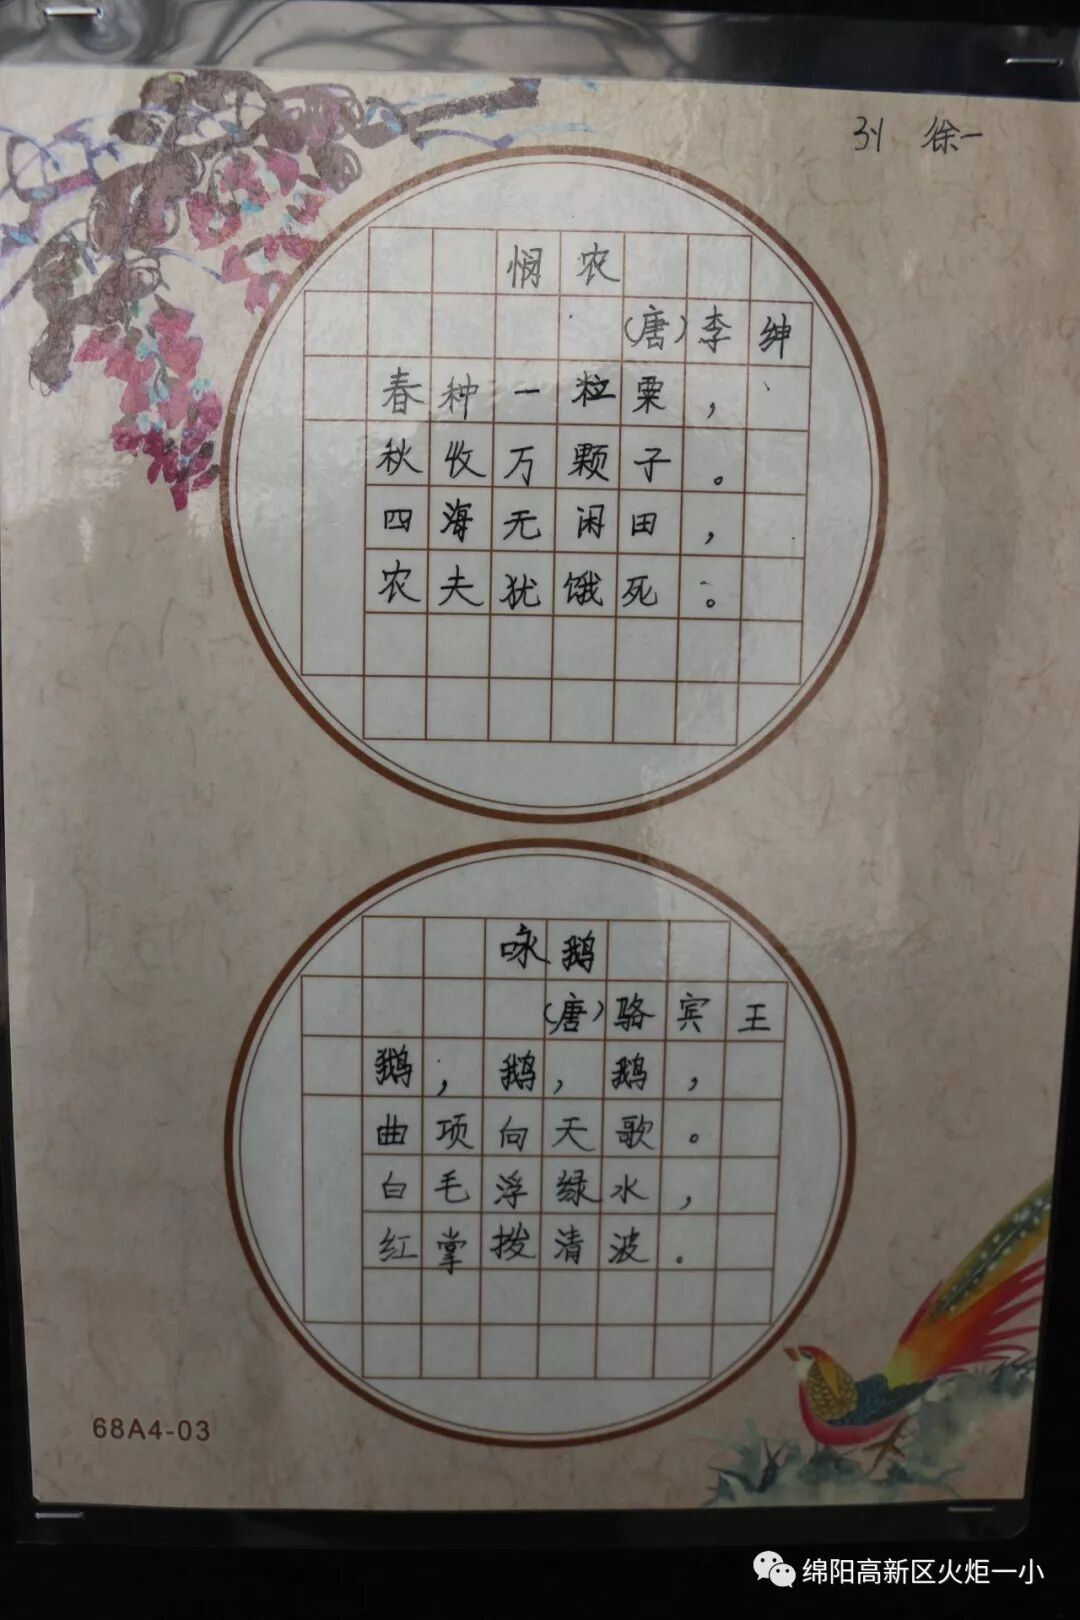 3.1 徐一
悯农
(唐)李绅
春种一粒粟，
秋收万颗子。
四海无闲田，
农夫犹饿死。
咏鹅
(唐)骆宾王
鹅，鹅，鹅，
曲项向天歌。
白毛浮绿水，
红掌拨清波。
68A4-03
绵阳高新区火炬一小